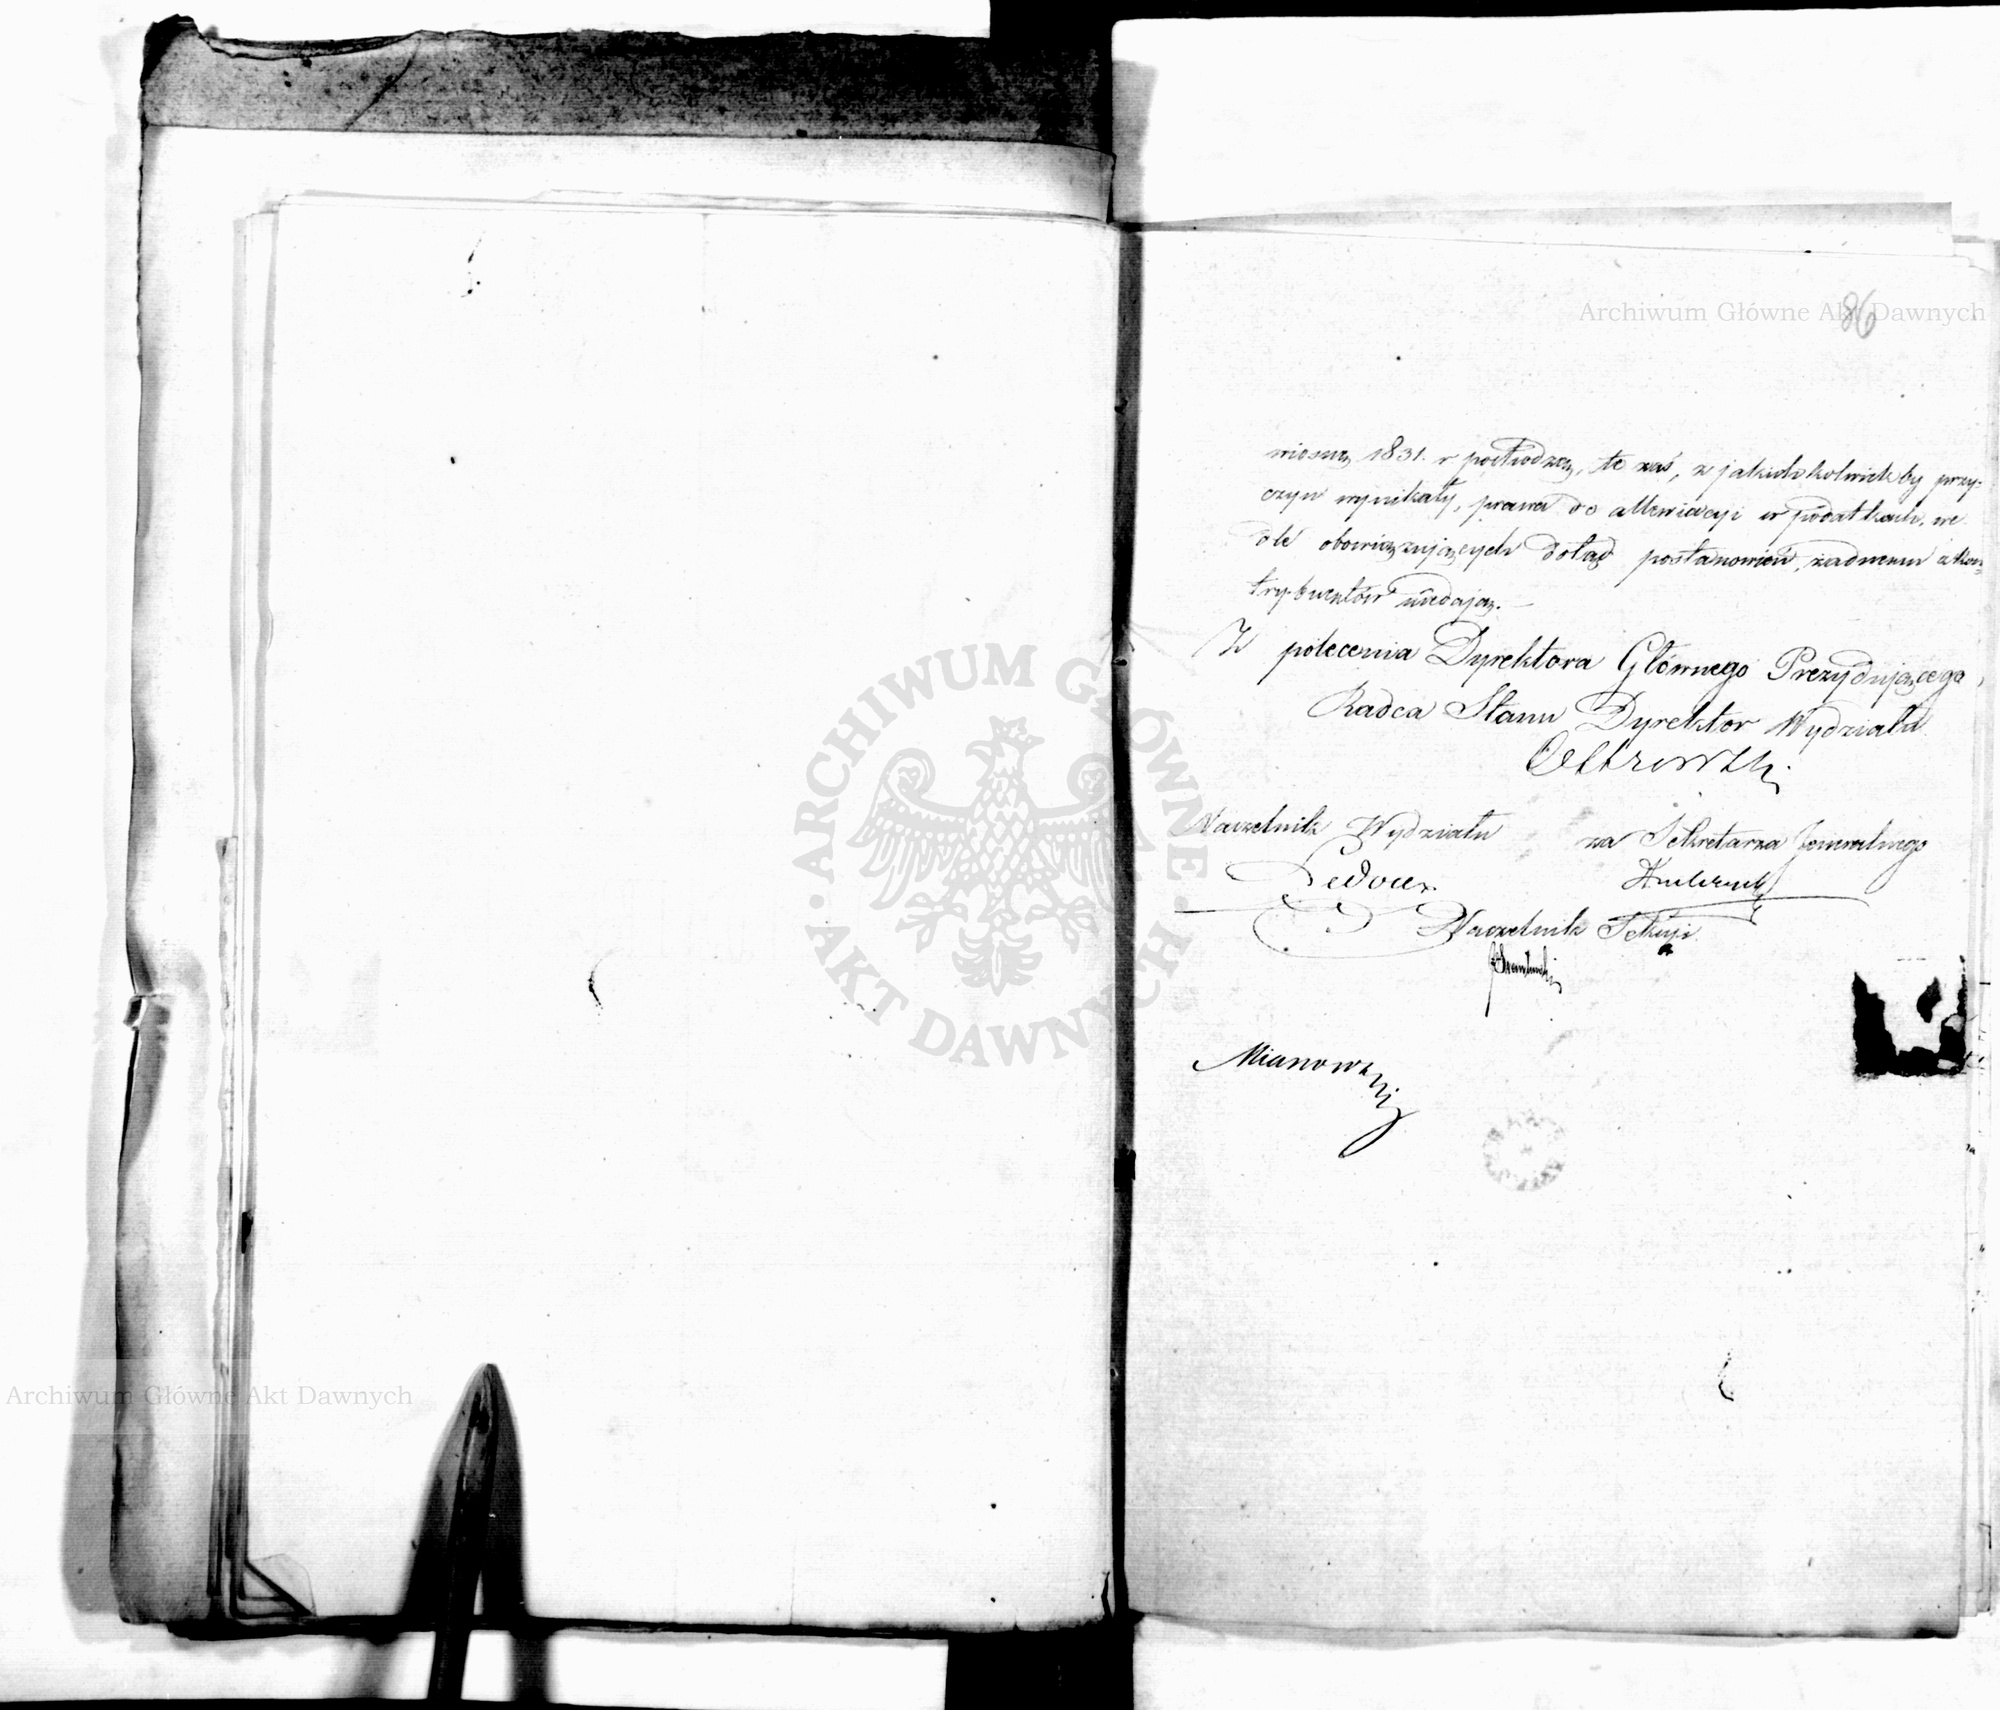 Archiwum Główne Akt Dawnych
86
wiosną 1831. r pochodzą, te zaś, z jakichkolwiek by przy-
czyn wynikały, prawa do allewiacyi w podatkach, we
dle obowiązujących dotąd postanowień, żadnemu z kon-
trybuentów niedają.—
Z polecenia Dyrektora Głównego Prezydującego,
Radca Stanu Dyrektor Wydziału
Naczelnik Wydziału za Sekretarza Jeneralnego
Ledoux
Naczelnik Sekcyi
Mianowski
ARCHIWUM GŁÓWNE
AKT DAWNYCH
Archiwum Główne Akt Dawnych